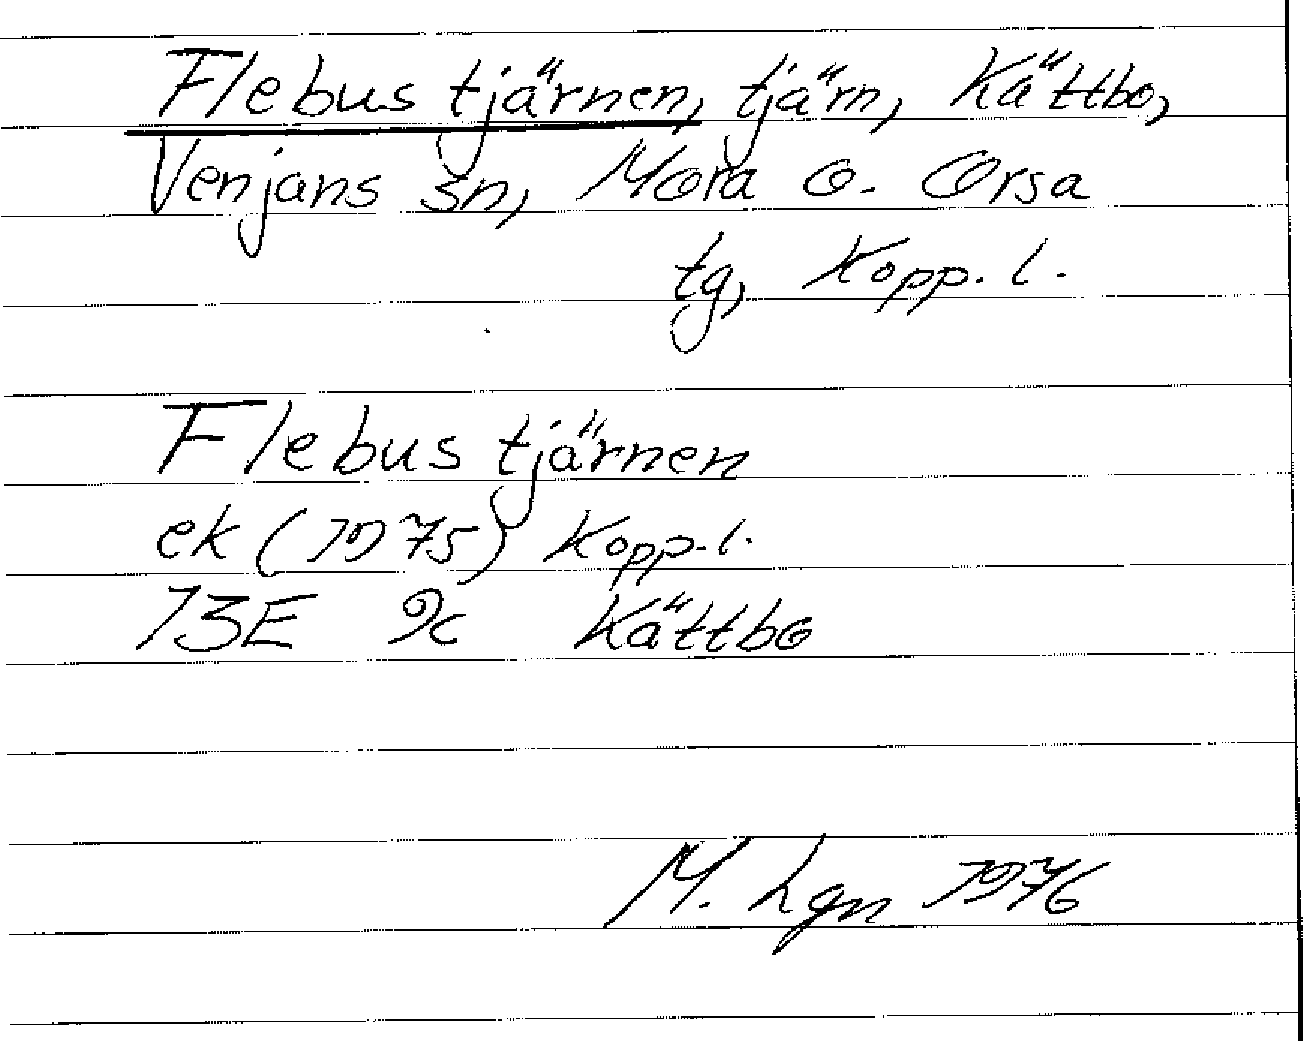 Flebustjärnen, tjärn, Kättbo,
Venjans sn, Mora o. Orsa
tg, Kopp. l.
Flebustjärnen
ek (1975) Kopp. l.
13E 9c Kättbo
M. Lgn 1976